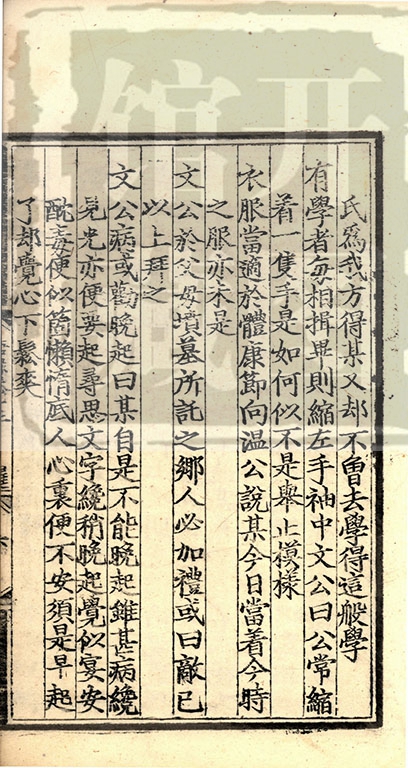 氏爲我方得某又却不曾去學得這般學
有學者每相揖畢則縮左手袖中文公曰公常縮
着一隻手是如何似不是舉止模樣
衣服當適於體康節向温公說某今日當着今時
之服亦未是
文公於父母墳墓所託之鄉人必加禮或曰敵已
以上拜之
文公病或勸晚起曰某自是不能晚起雖甚病纔
見光亦便要起尋思文字纔稍晚起覺似宴安
酖毒便似箇懶惰底人心裏便不安須是早起
了却覺心下鬆爽